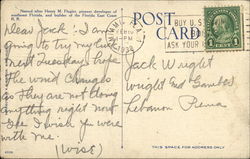 Named after Henry M. Flagler, pioneer developer of
southeast Florida, and builder of the Florida East Coast
R. R.
POST
CARD
BUY U. S.
ASK YOUR
1
Dear Jack: I am
going to try my luck
next Tuesday. hope
the wind changes
as they are not doing
anything right now
Gee I wish you were
with me.
(Wise)
Jack Wright
Wright and Gambes
Lebanon Penna
THIS SPACE FOR ADDRESS ONLY